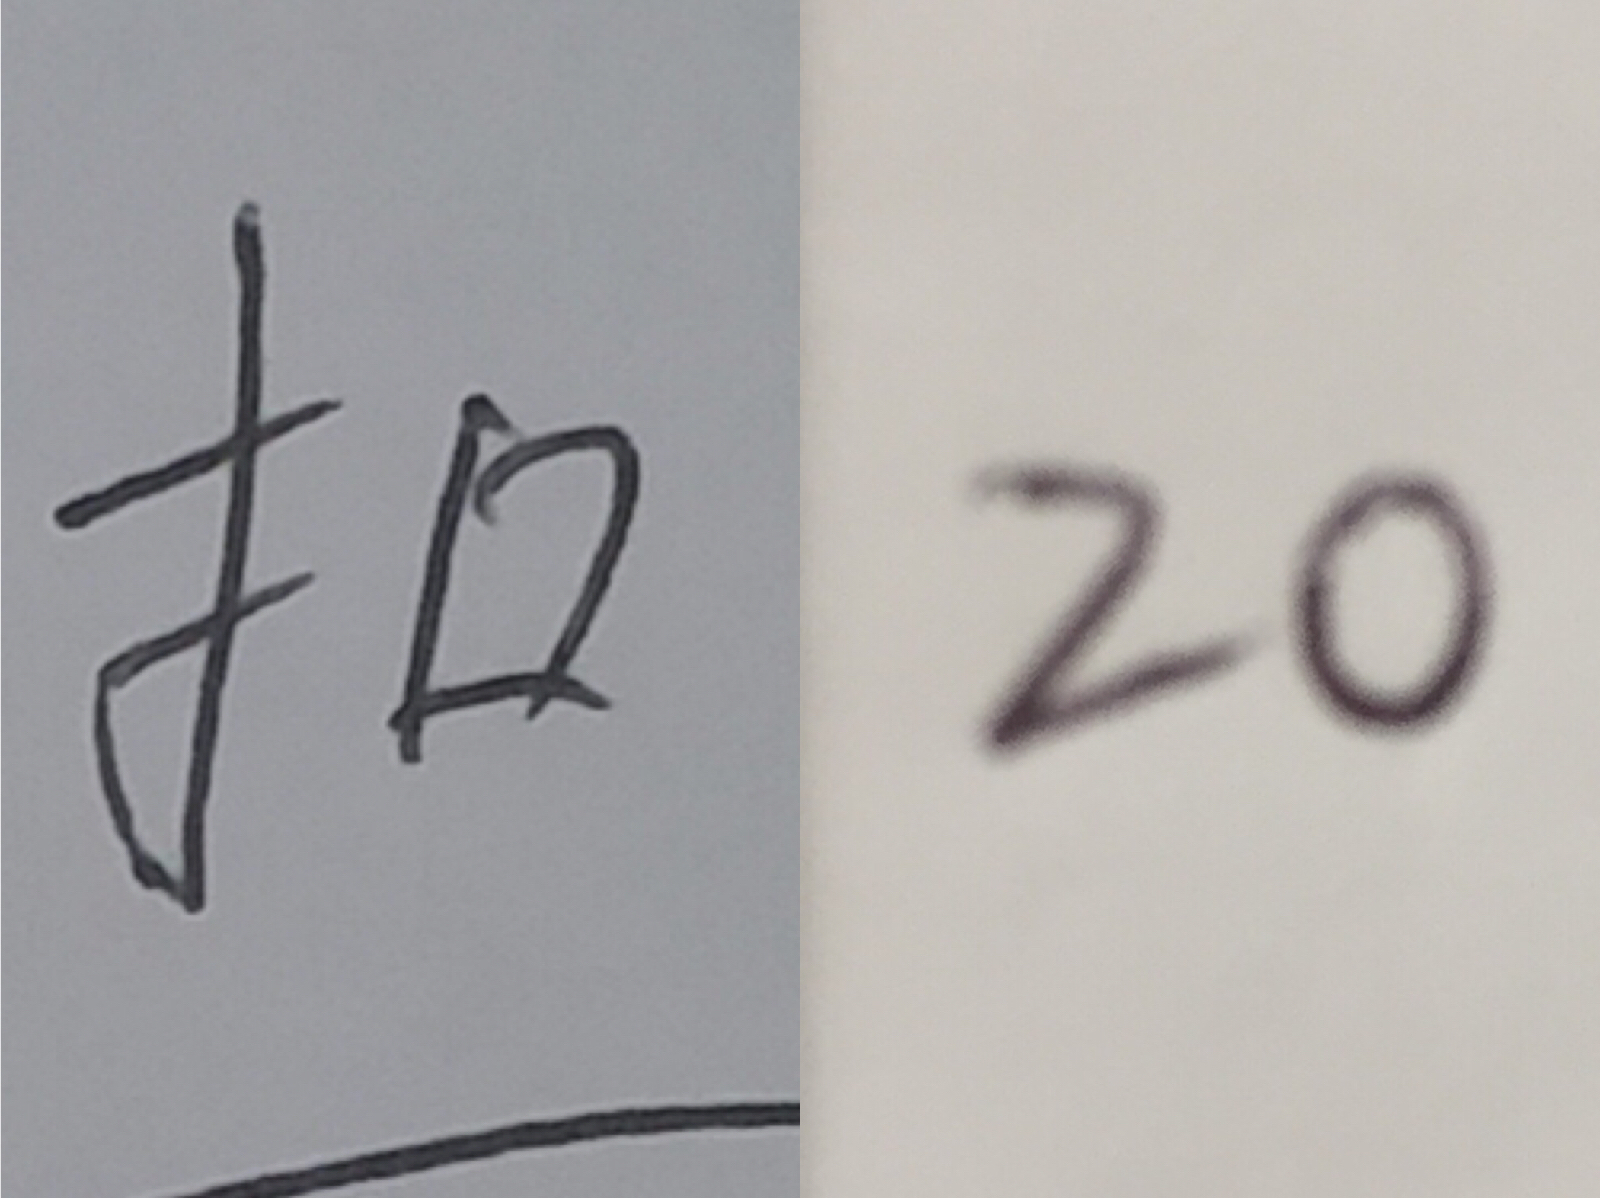 扣 20